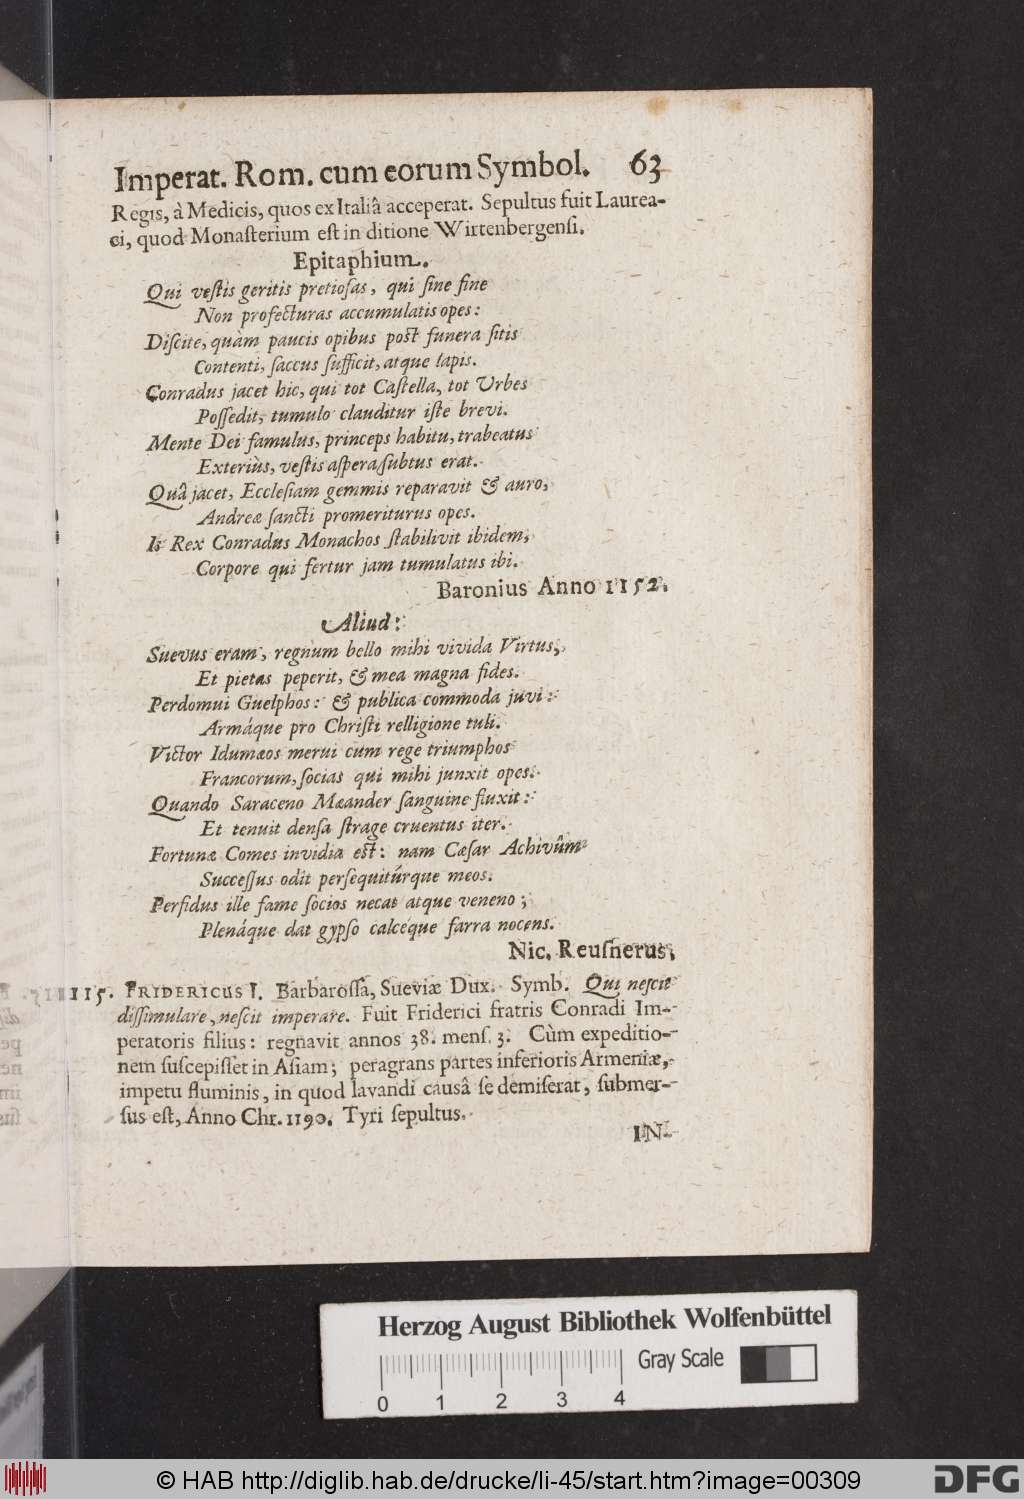 Imperat. Rom. cum eorum Symbol. 63
Regis, à Medicis, quos ex Italiâ acceperat. Sepultus fuit Laurea-
ci, quod Monaſterium eſt in ditione Wirtenbergenſi.
Epitaphium.
Qui veſtis geritis pretioſas, qui ſine fine
Non profecturas accumulatis opes:
Diſcite, quàm paucis opibus poſt funera ſitis
Contenti, ſaccus ſufficit, atque lapis.
Conradus jacet hic, qui tot Caſtella, tot Urbes
Poſſedit, tumulo clauditur iſte brevi.
Mente Dei famulus, princeps habitu, trabeatus
Exteriùs, veſtis aſpera ſubtus erat.
Quâ jacet, Eccleſiam gemmis reparavit & auro,
Andreæ ſancti promeriturus opes.
Is Rex Conradus Monachos ſtabilivit ibidem,
Corpore qui fertur jam tumulatus ibi.
Baronius Anno 1152.
Aliud:
Suevus eram, regnum bello mihi vivida Virtus,
Et pietas peperit, & mea magna fides.
Perdomui Guelphos: & publica commoda juvi:
Armáque pro Chriſti relligione tuli.
Victor Idumæos merui cum rege triumphos
Francorum, ſocias qui mihi junxit opes.
Quando Saraceno Mæander ſanguine fluxit:
Et tenuit denſa ſtrage cruentus iter.
Fortunæ Comes invidia eſt: nam Cæſar Achivûm
Succeſſus odit perſequitúrque meos.
Perfidus ille fame ſocios necat atque veneno;
Plenáque dat gypſo calceque farra nocens.
Nic. Reuſnerus.
115. FRIDERICUS I. Barbaroſſa, Sueviæ Dux. Symb. Qui neſcit
diſſimulare, neſcit imperare. Fuit Friderici fratris Conradi Im-
peratoris filius: regnavit annos 38. menſ. 3. Cùm expeditio-
nem ſuſcepiſſet in Aſiam; peragrans partes inferioris Armeniæ,
impetu fluminis, in quod lavandi causâ ſe demiſerat, ſubmer-
ſus eſt, Anno Chr. 1190. Tyri ſepultus.
IN-
Herzog August Bibliothek Wolfenbüttel
Gray Scale
0 1 2 3 4
© HAB http://diglib.hab.de/drucke/li-45/start.htm?image=00309
DFG